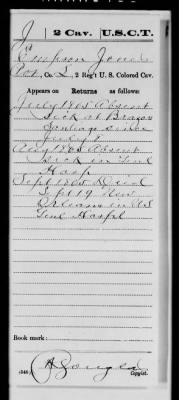 J | 2 Cav. | U.S.C.T.
Empson Jones
Pvt, Co. L, 2 Reg't U. S. Colored Cav.
Appears on Returns as follows:
July 1865 Absent
Sick at Brazos
Santiago since
July 8
Aug 1865 Absent
sick in Genl
Hosp
Sept 1865 Died
Sept 19 New
Orleans in US
Genl Hospl
Book mark:
(346)
Copyist.